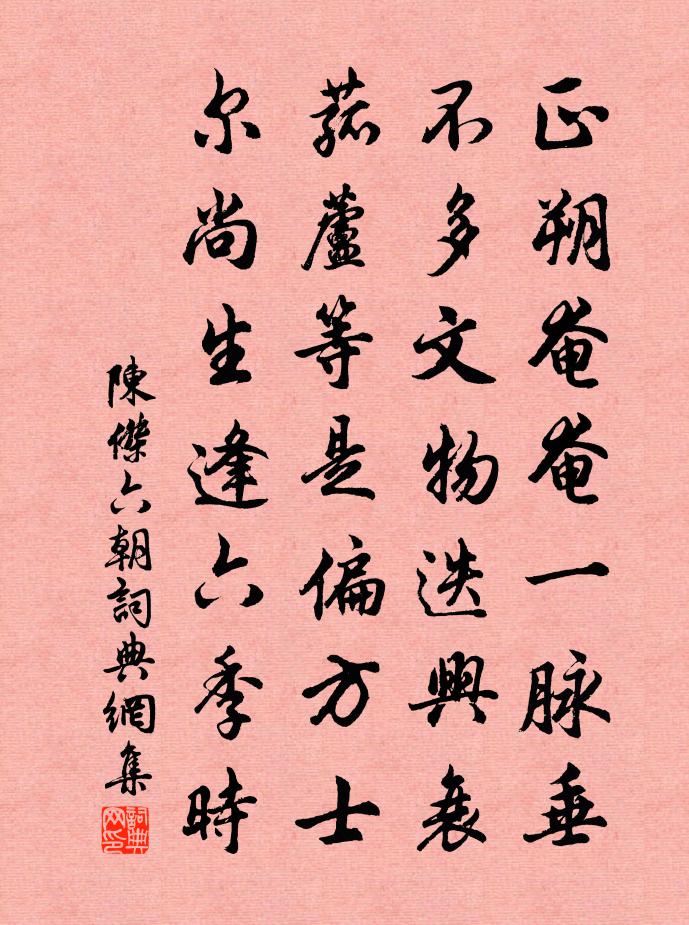 正朔奄奄一脉垂
不多文物迭興衰
菰蘆等是偏方士
尔尚生逢六季時
陳傑六朝詞典網集
詞典网印